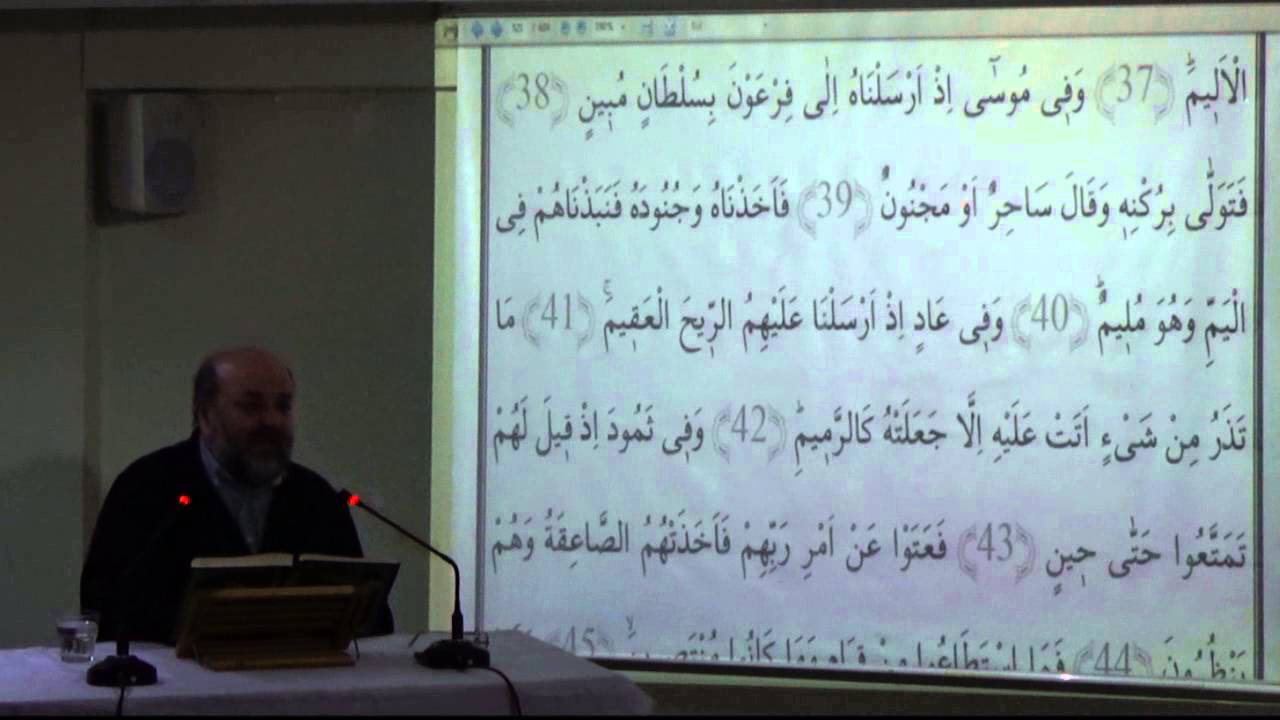 190%
الْاَل۪يمَۜ ﴿37﴾ وَف۪ى مُوسٰٓى اِذْ اَرْسَلْنَاهُ اِلٰى فِرْعَوْنَ بِسُلْطَانٍ مُب۪ينٍ ﴿38﴾
فَتَوَلّٰى بِرُكْنِه۪ وَقَالَ سَاحِرٌ اَوْ مَجْنُونٌ ﴿39﴾ فَاَخَذْنَاهُ وَجُنُودَهُ فَنَبَذْنَاهُمْ فِى
الْيَمِّ وَهُوَ مُل۪يمٌۜ ﴿40﴾ وَف۪ى عَادٍ اِذْ اَرْسَلْنَا عَلَيْهِمُ الرّ۪يحَ الْعَق۪يمَۚ ﴿41﴾ مَا
تَذَرُ مِنْ شَىْءٍ اَتَتْ عَلَيْهِ اِلَّا جَعَلَتْهُ كَالرَّم۪يمِۜ ﴿42﴾ وَف۪ى ثَمُودَ اِذْ ق۪يلَ لَهُمْ
تَمَتَّعُوا حَتّٰى ح۪ينٍ ﴿43﴾ فَعَتَوْا عَنْ اَمْرِ رَبِّهِمْ فَاَخَذَتْهُمُ الصَّاعِقَةُ وَهُمْ
يَنْظُرُونَ ﴿44﴾ فَمَا اسْتَطَاعُوا مِنْ قِيَامٍ وَمَا كَانُوا مُنْتَصِر۪ينَۙ ﴿45﴾